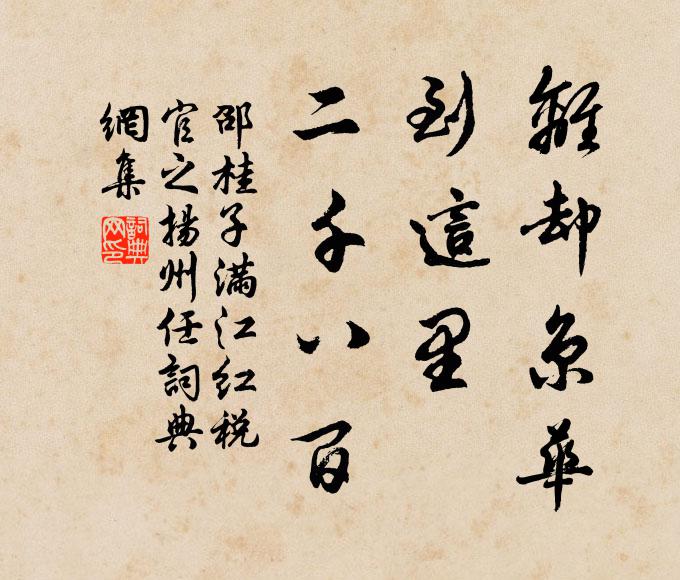 離却京華
到這里
二千八百
邵桂子滿江紅税
官之揚州任詞典
網集
詞典
网印